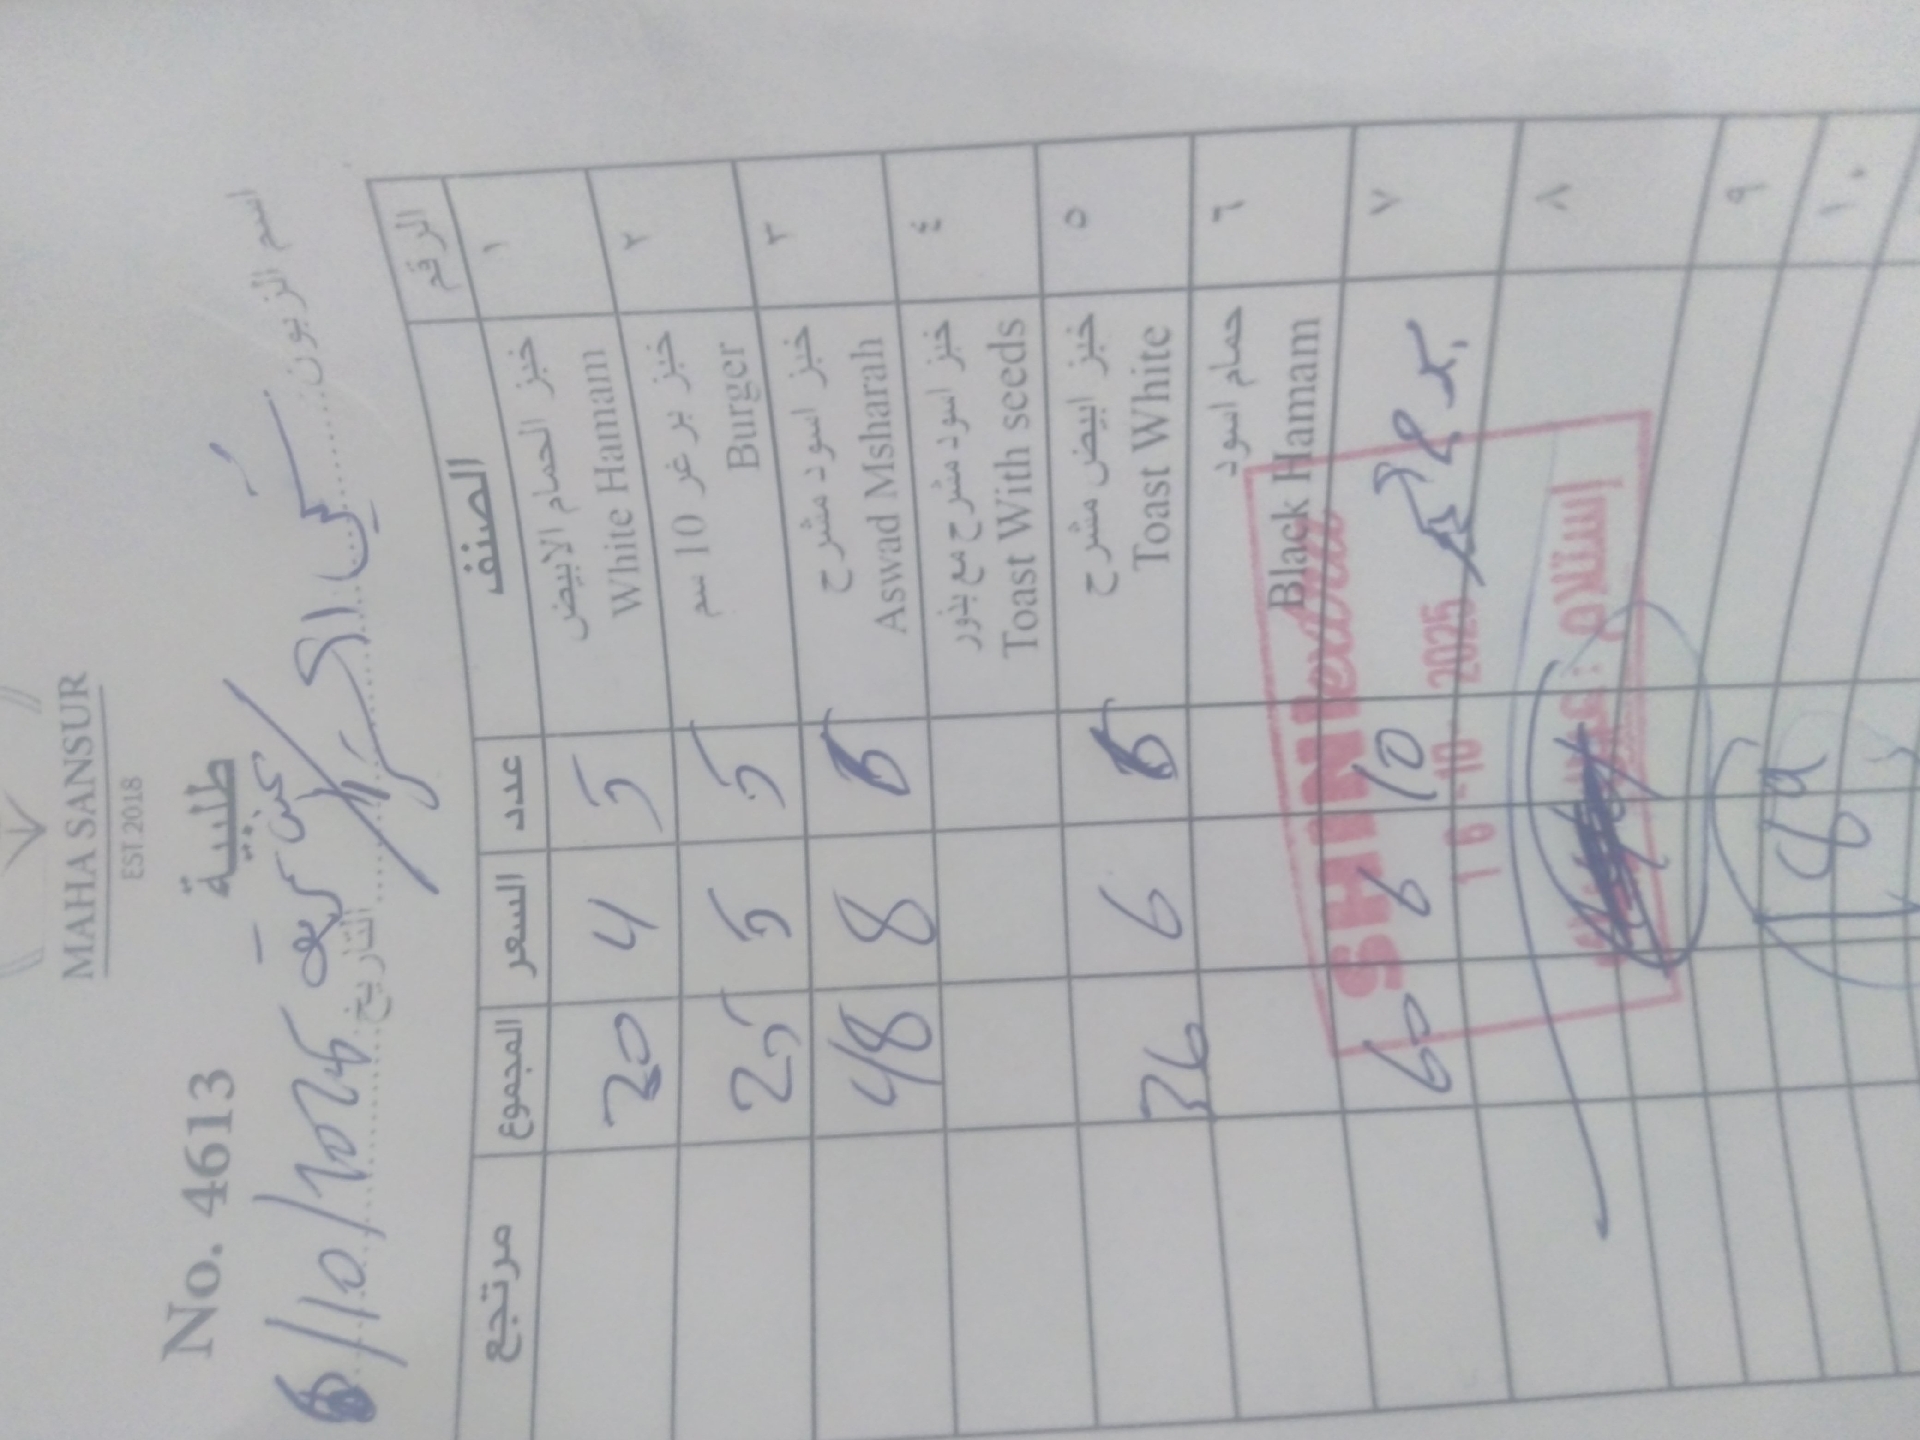 MAHA SANSUR
EST.2018
طلبية
No. 4613
اسم الزبون
التاريخ 6/10/2025
الرقم الصنف عدد السعر المجموع مرتجع
١ خبز الحمام الابيض 5 4 20
White Hamam
٢ خبز برغر 10 سم 5 5 25
Burger
٣ خبز اسود مشرح 6 8 48
Aswad Msharah
٤ خبز اسود مشرح مع بذور
Toast With seeds
٥ خبز ابيض مشرح 6 6 36
Toast White
٦ حمام اسود
Black Hamam
٧ 10 6 60
SHINI extra
16 -10- 2025
إستلام :
٨
٩ 189
١٠